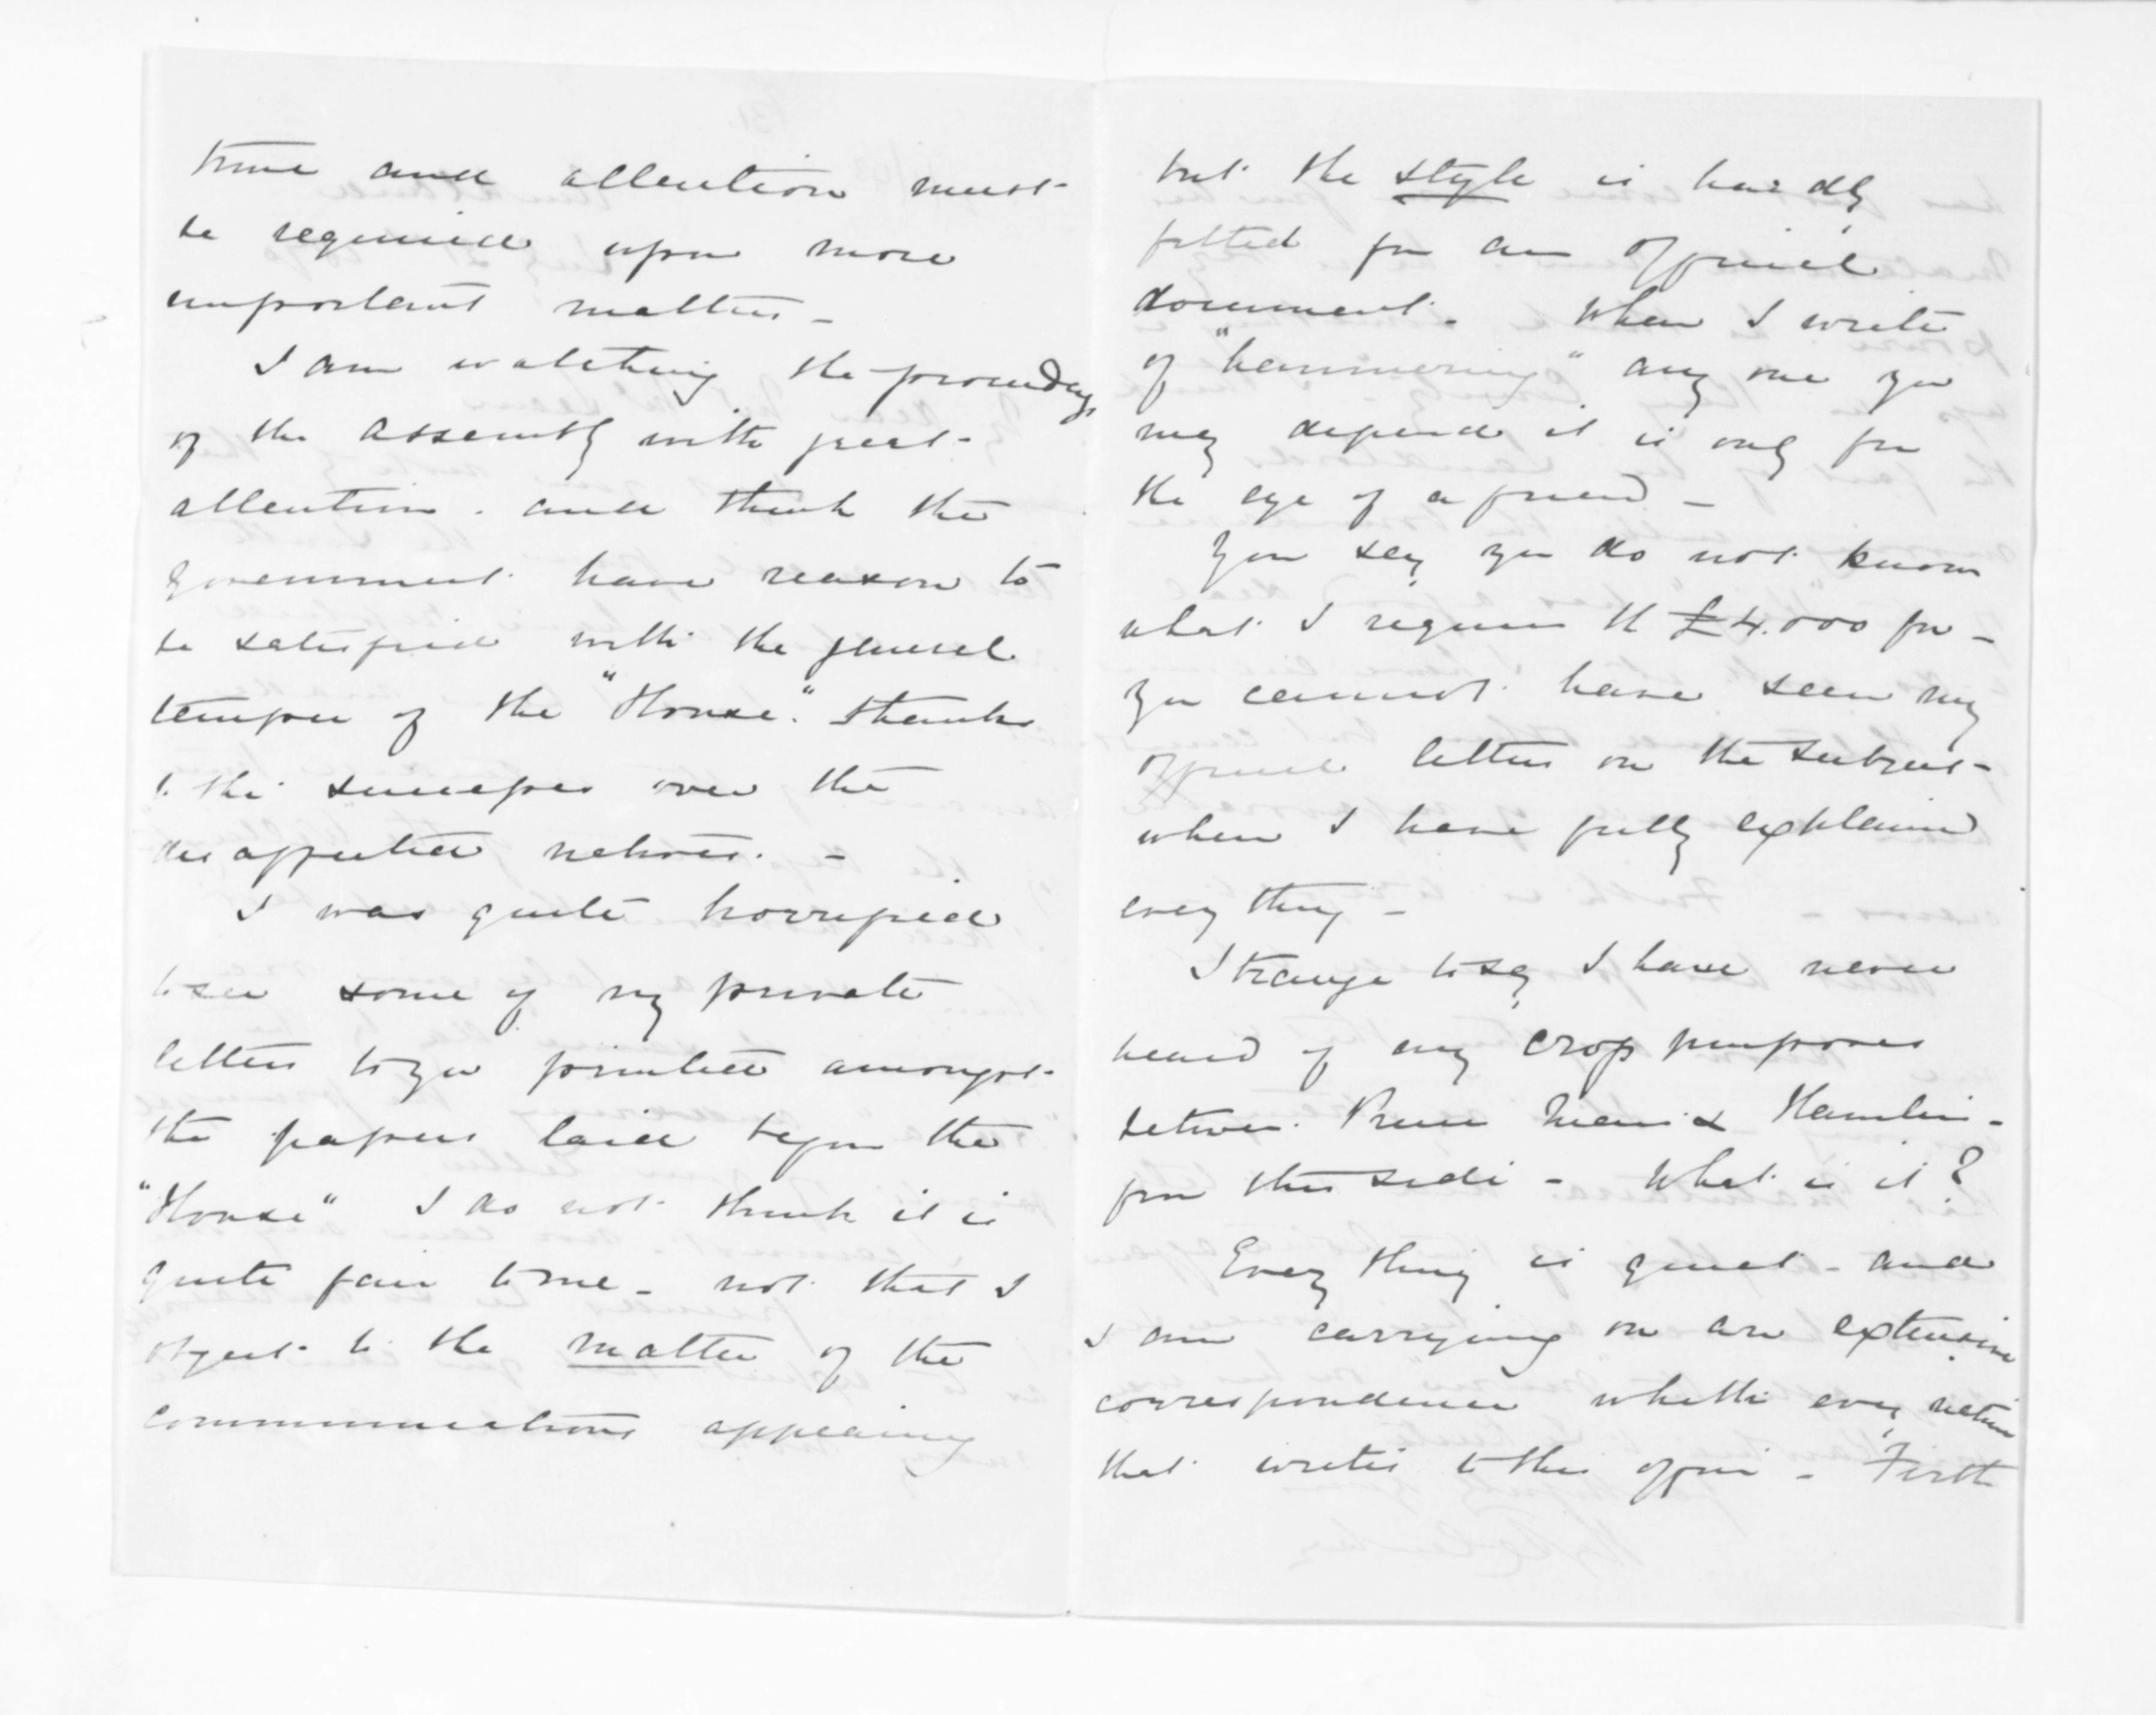 time and attention must
be required upon more
important matters -
I am watching the proceedings
of the assembly with great
attention. and think the
Government have reason to
be satisfied with the general
temper of the "House". thanks
to the successes over the
disaffected natives. -
I was quite horrified
to see some of my private
letters to you printed amongst
the papers laid before the
"House" I do not think it is
quite fair to me - not that I
object to the matter of the
communications appearing
but the style is hardly
fitted for an official
document. When I write
of "hammering" any one you
may depend it is only for
the eye of a friend -
You say you do not know
what I require the £4.000 for -
you cannot have seen my
official letters on the subject
when I have fully explained
every thing -
Strange to say I have never
heard of any cross purposes
between & Hamlin -
from this side - What is it?
Every thing is quiet - and
I am carrying on an extensive
correspondence every native
that writes to this office - Firth